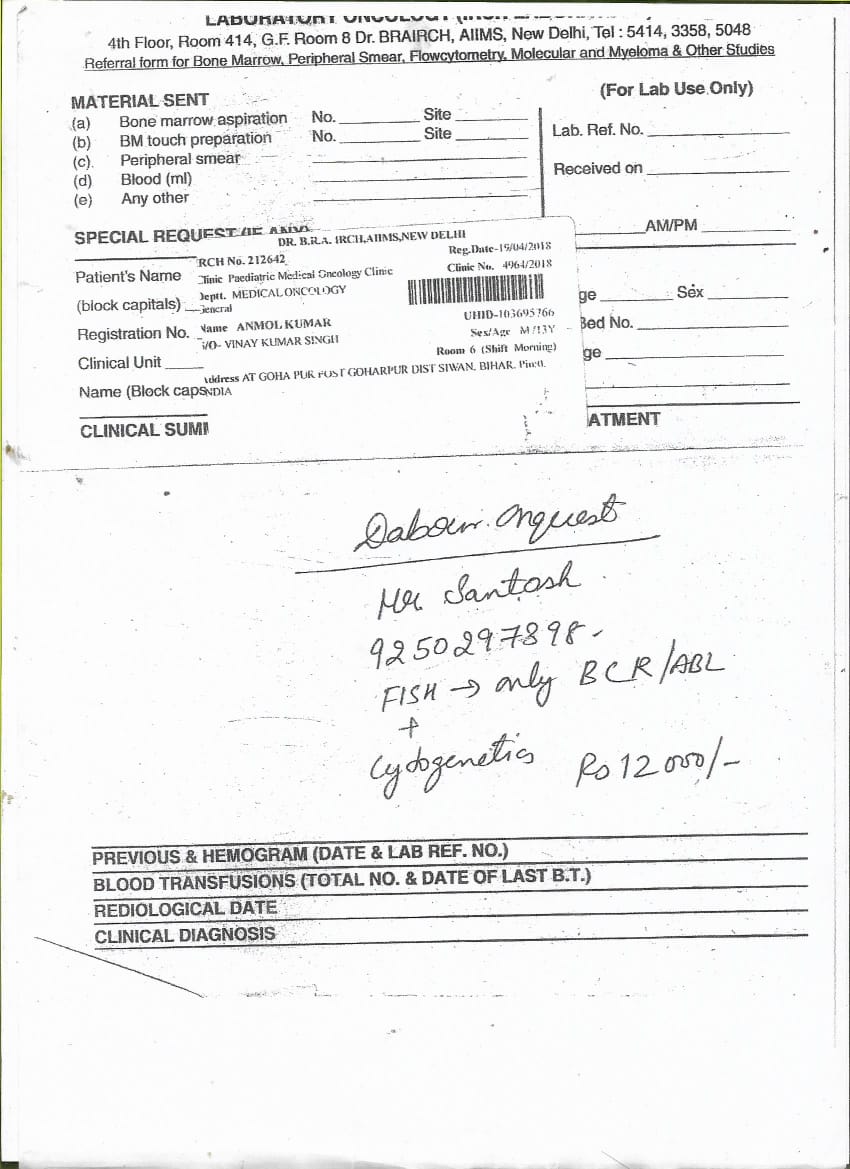 LABORATORY ONCOLOGY
4th Floor, Room 414, G.F. Room 8 Dr. BRAIRCH, AIIMS, New Delhi, Tel : 5414, 3358, 5048
Referral form for Bone Marrow, Peripheral Smear, Flowcytometry, Molecular and Myeloma & Other Studies
(For Lab Use Only)
MATERIAL SENT
(a) Bone marrow aspiration No. Site
(b) BM touch preparation No. Site
(c). Peripheral smear
(d) Blood (ml)
(e) Any other
Lab. Ref. No.
Received on
AM/PM
SPECIAL REQUEST
DR. B.R.A. IRCH,AIIMS,NEW DELHI
Reg.Date-19/04/2018
RCH No. 212642
Clinic No. 4964/2018
Clinic Paediatric Medical Oncology Clinic
Deptt. MEDICAL ONCOLOGY
General
UHID-103695766
Name ANMOL KUMAR
Sex/Age M /13Y
S/O- VINAY KUMAR SINGH
Room 6 (Shift Morning)
Address AT GOHA PUR POST GOHARPUR DIST SIWAN, BIHAR,
NDIA
Patient's Name
(block capitals)
Registration No.
Clinical Unit
Name (Block caps
ge Sex
Bed No.
ge
CLINICAL SUM
ATMENT
Mr Santosh
9250297898-
FISH → only BCR/ABL
+
Cytogenetics Rs 12000/-
PREVIOUS & HEMOGRAM (DATE & LAB REF. NO.)
BLOOD TRANSFUSIONS (TOTAL NO. & DATE OF LAST B.T.)
REDIOLOGICAL DATE
CLINICAL DIAGNOSIS